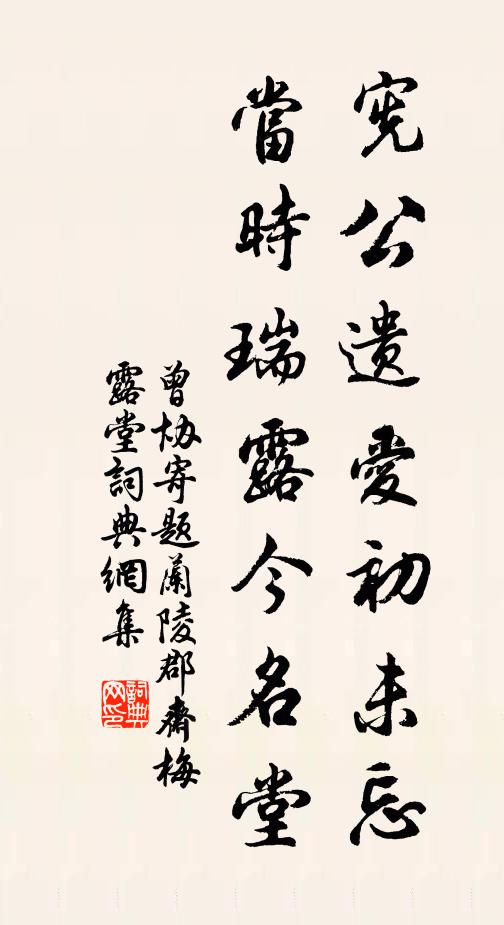 宪公遗愛初未忘
當時瑞露今名堂
曾协寄题蘭陵郡齋梅
露堂詞典網集
詞典
网印